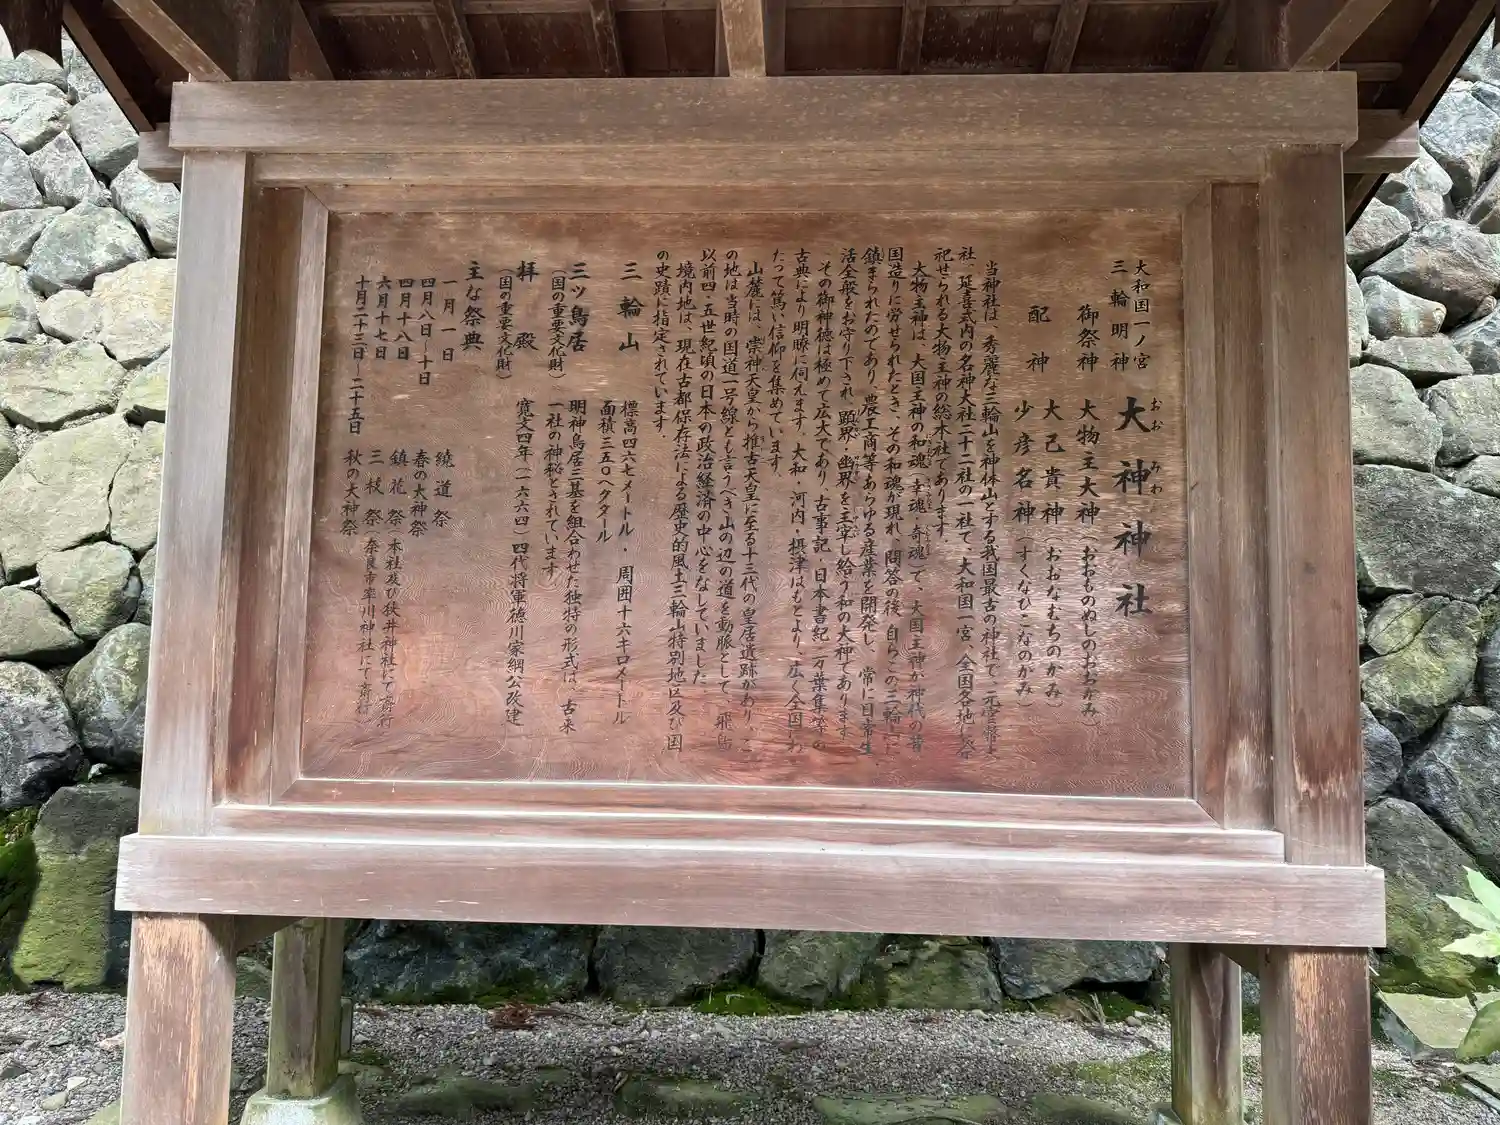 大和国一ノ宮
三輪明神
大神神社
おお みわ
御祭神 大物主大神(おおものぬしのおおかみ)
配神 大己貴神(おおなむちのかみ)
少彦名神(すくなひこなのかみ)
当神社は、秀麗な三輪山を神体山とする我国最古の神社で、元官幣大
社、延喜式内の名神大社二十二社の一社で、大和国一宮、全国各地に奉
祀せられる大物主神の総本社であります。
大物主神は、大国主神の和魂(幸魂・奇魂)で、大国主神が神代の昔
国造りに労せられたとき、その和魂が現れ、問答の後、自らこの三輪山に
鎮まられたのであり、農工商等あらゆる産業を開発し、常に日常生
活全般をお守り下され、顕界・幽界を主宰し給う和の大神であります。
その御神徳は極めて広大であり、古事記・日本書紀・万葉集等の
古典により明瞭に伺えます。大和・河内・摂津はもとより、広く全国にわ
たって篤い信仰を集めています。
山麓には、崇神天皇から推古天皇に至る十三代の皇居遺跡があり、こ
の地は当時の国道一号線とも言うべき山の辺の道を動脈として、飛鳥
以前四・五世紀頃の日本の政治経済の中心をなしていました。
境内地は、現在古都保存法による歴史的風土三輪山特別地区及び国
の史蹟に指定されています。
三輪山 標高四六七メートル・周囲十六キロメートル
面積三五〇ヘクタール
三ツ鳥居 明神鳥居三基を組合わせた独特の形式は、古来
(国の重要文化財) 一社の神秘とされています
拝殿 寛文四年(一六六四)四代将軍徳川家綱公改建
(国の重要文化財)
主な祭典
一月一日 繞道祭
四月八日~十日 春の大神祭
四月十八日 鎮花祭(本社及び狭井神社にて斎行)
六月十七日 三枝祭(奈良市率川神社にて斎行)
十月二十三日~二十五日 秋の大神祭